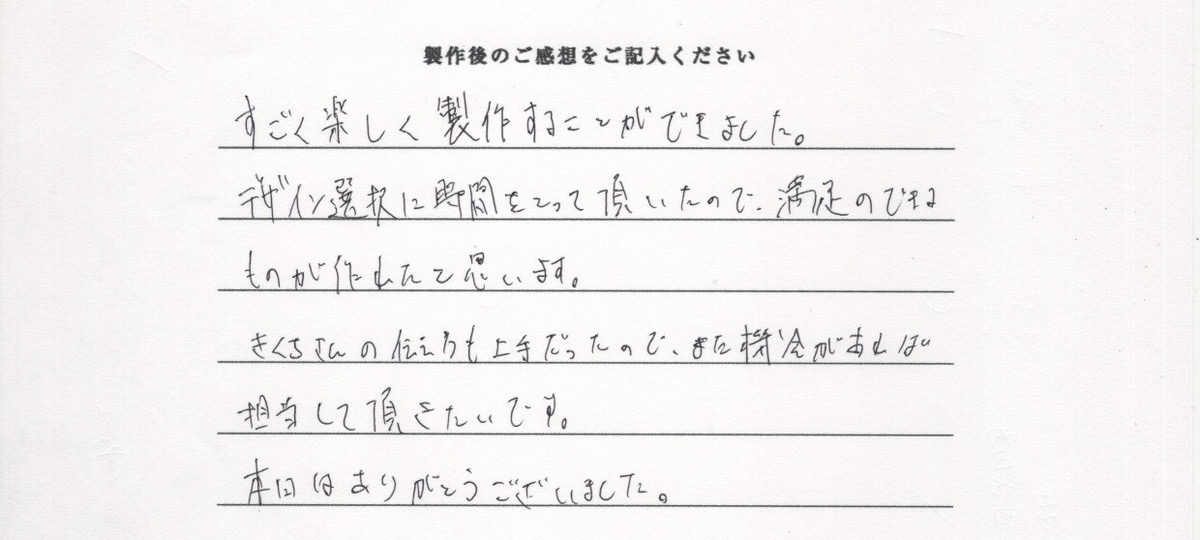 製作後のご感想をご記入ください
すごく楽しく製作することができました。
デザイン選択に時間をとって頂いたので、満足のできる
ものが作れたと思います。
きくちさんの伝え方も上手だったので、また機会があれば
担当して頂きたいです。
本日はありがとうございました。